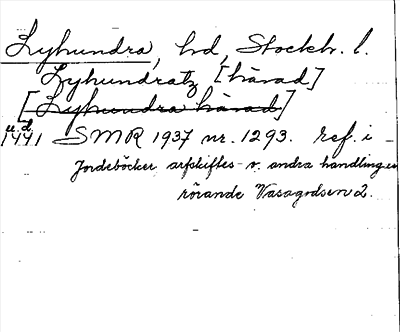 Lyhundra, hd, Stockh. l.
Lyhundratz [härad]
[Lyhundra härad]
u.d.
1441 SMR 1937 nr. 1293. ref. i
Jordeböcker arfskiftes- o. andra handlingen
rörande Vasagodsen 2.